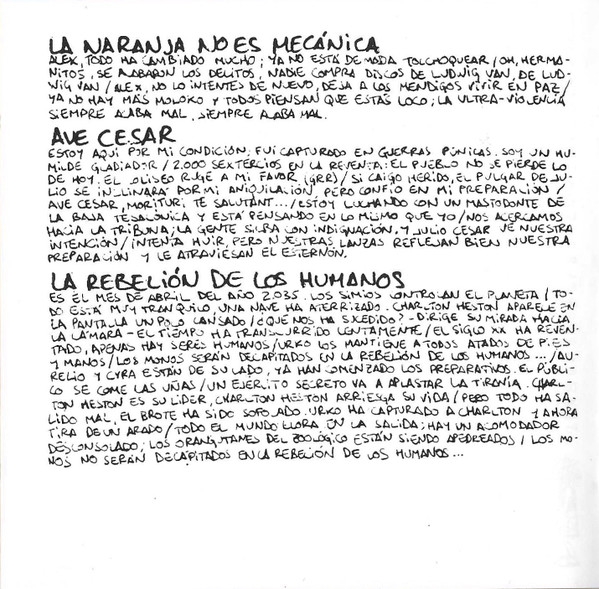 LA NARANJA NO ES MECÁNICA
ALEX, TODO HA CAMBIADO MUCHO; YA NO ESTÁ DE MODA TOLCHOQUEAR / OH, HERMA-
NITOS, SE ACABARON LOS DELITOS, NADIE COMPRA DISCOS DE LUDWIG VAN, DE LUD-
WIG VAN / ALEX, NO LO INTENTES DE NUEVO, DEJA A LOS MENDIGOS VIVIR EN PAZ /
YA NO HAY MÁS MOLOKO Y TODOS PIENSAN QUE ESTÁS LOCO; LA ULTRA-VIOLENCIA
SIEMPRE ACABA MAL, SIEMPRE ACABA MAL.
AVE CESAR
ESTOY AQUÍ POR MI CONDICIÓN. FUI CAPTURADO EN GUERRAS PÚNICAS. SOY UN HU-
MILDE GLADIADOR / 2.000 SEXTERCIOS EN LA REVENTA: EL PUEBLO NO SE PIERDE LO
DE HOY. EL COLISEO RUGE A MI FAVOR (GRR) / SI CAIGO HERIDO, EL PULGAR DE JU-
LIO SE INCLINARÁ POR MI ANIQUILACIÓN, PERO CONFÍO EN MI PREPARACIÓN /
AVE CESAR, MORITURI TE SALUTANT... / ESTOY LUCHANDO CON UN MASTODONTE DE
LA BAJA TESALÓNICA Y ESTÁ PENSANDO EN LO MISMO QUE YO / NOS ACERCAMOS
HACIA LA TRIBUNA; LA GENTE SILBA CON INDIGNACIÓN. Y JULIO CESAR VE NUESTRA
INTENCIÓN / INTENTA HUIR, PERO NUESTRAS LANZAS REFLEJAN BIEN NUESTRA
PREPARACIÓN Y LE ATRAVIESAN EL ESTERNÓN.
LA REBELIÓN DE LOS HUMANOS
ES EL MES DE ABRIL DEL AÑO 2.035. LOS SIMIOS CONTROLAN EL PLANETA / TO-
DO ESTÁ MUY TRANQUILO, UNA NAVE HA ATERRIZADO. CHARLTON HESTON APARECE EN
LA PANTALLA UN POCO CANSADO / ¿QUÉ NOS HA SUCEDIDO? - DIRIGE SU MIRADA HACIA
LA CÁMARA - EL TIEMPO HA TRANSCURRIDO LENTAMENTE / EL SIGLO XX HA REVEN-
TADO, APENAS HAY SERES HUMANOS / URKO LOS MANTIENE A TODOS ATADOS DE PIES
Y MANOS / LOS MONOS SERÁN DECAPITADOS EN LA REBELIÓN DE LOS HUMANOS ... / AU-
RELIO Y CYRA ESTÁN DE SU LADO, YA HAN COMENZADO LOS PREPARATIVOS. EL PÚBLI-
CO SE COME LAS UÑAS / UN EJÉRCITO SECRETO VA A APLASTAR LA TIRANÍA. CHARL-
TON HESTON ES SU LIDER, CHARLTON HESTON ARRIESGA SU VIDA / PERO TODO HA SA-
LIDO MAL, EL BROTE HA SIDO SOFOCADO. URKO HA CAPTURADO A CHARLTON Y AHORA
TIRA DE UN ARADO / TODO EL MUNDO LLORA EN LA SALIDA; HAY UN ACOMODADOR
DESCONSOLADO; LOS ORANGUTANES DEL ZOOLÓGICO ESTÁN SIENDO APEDREADOS / LOS MO-
NOS NO SERÁN DECAPITADOS EN LA REBELIÓN DE LOS HUMANOS ...